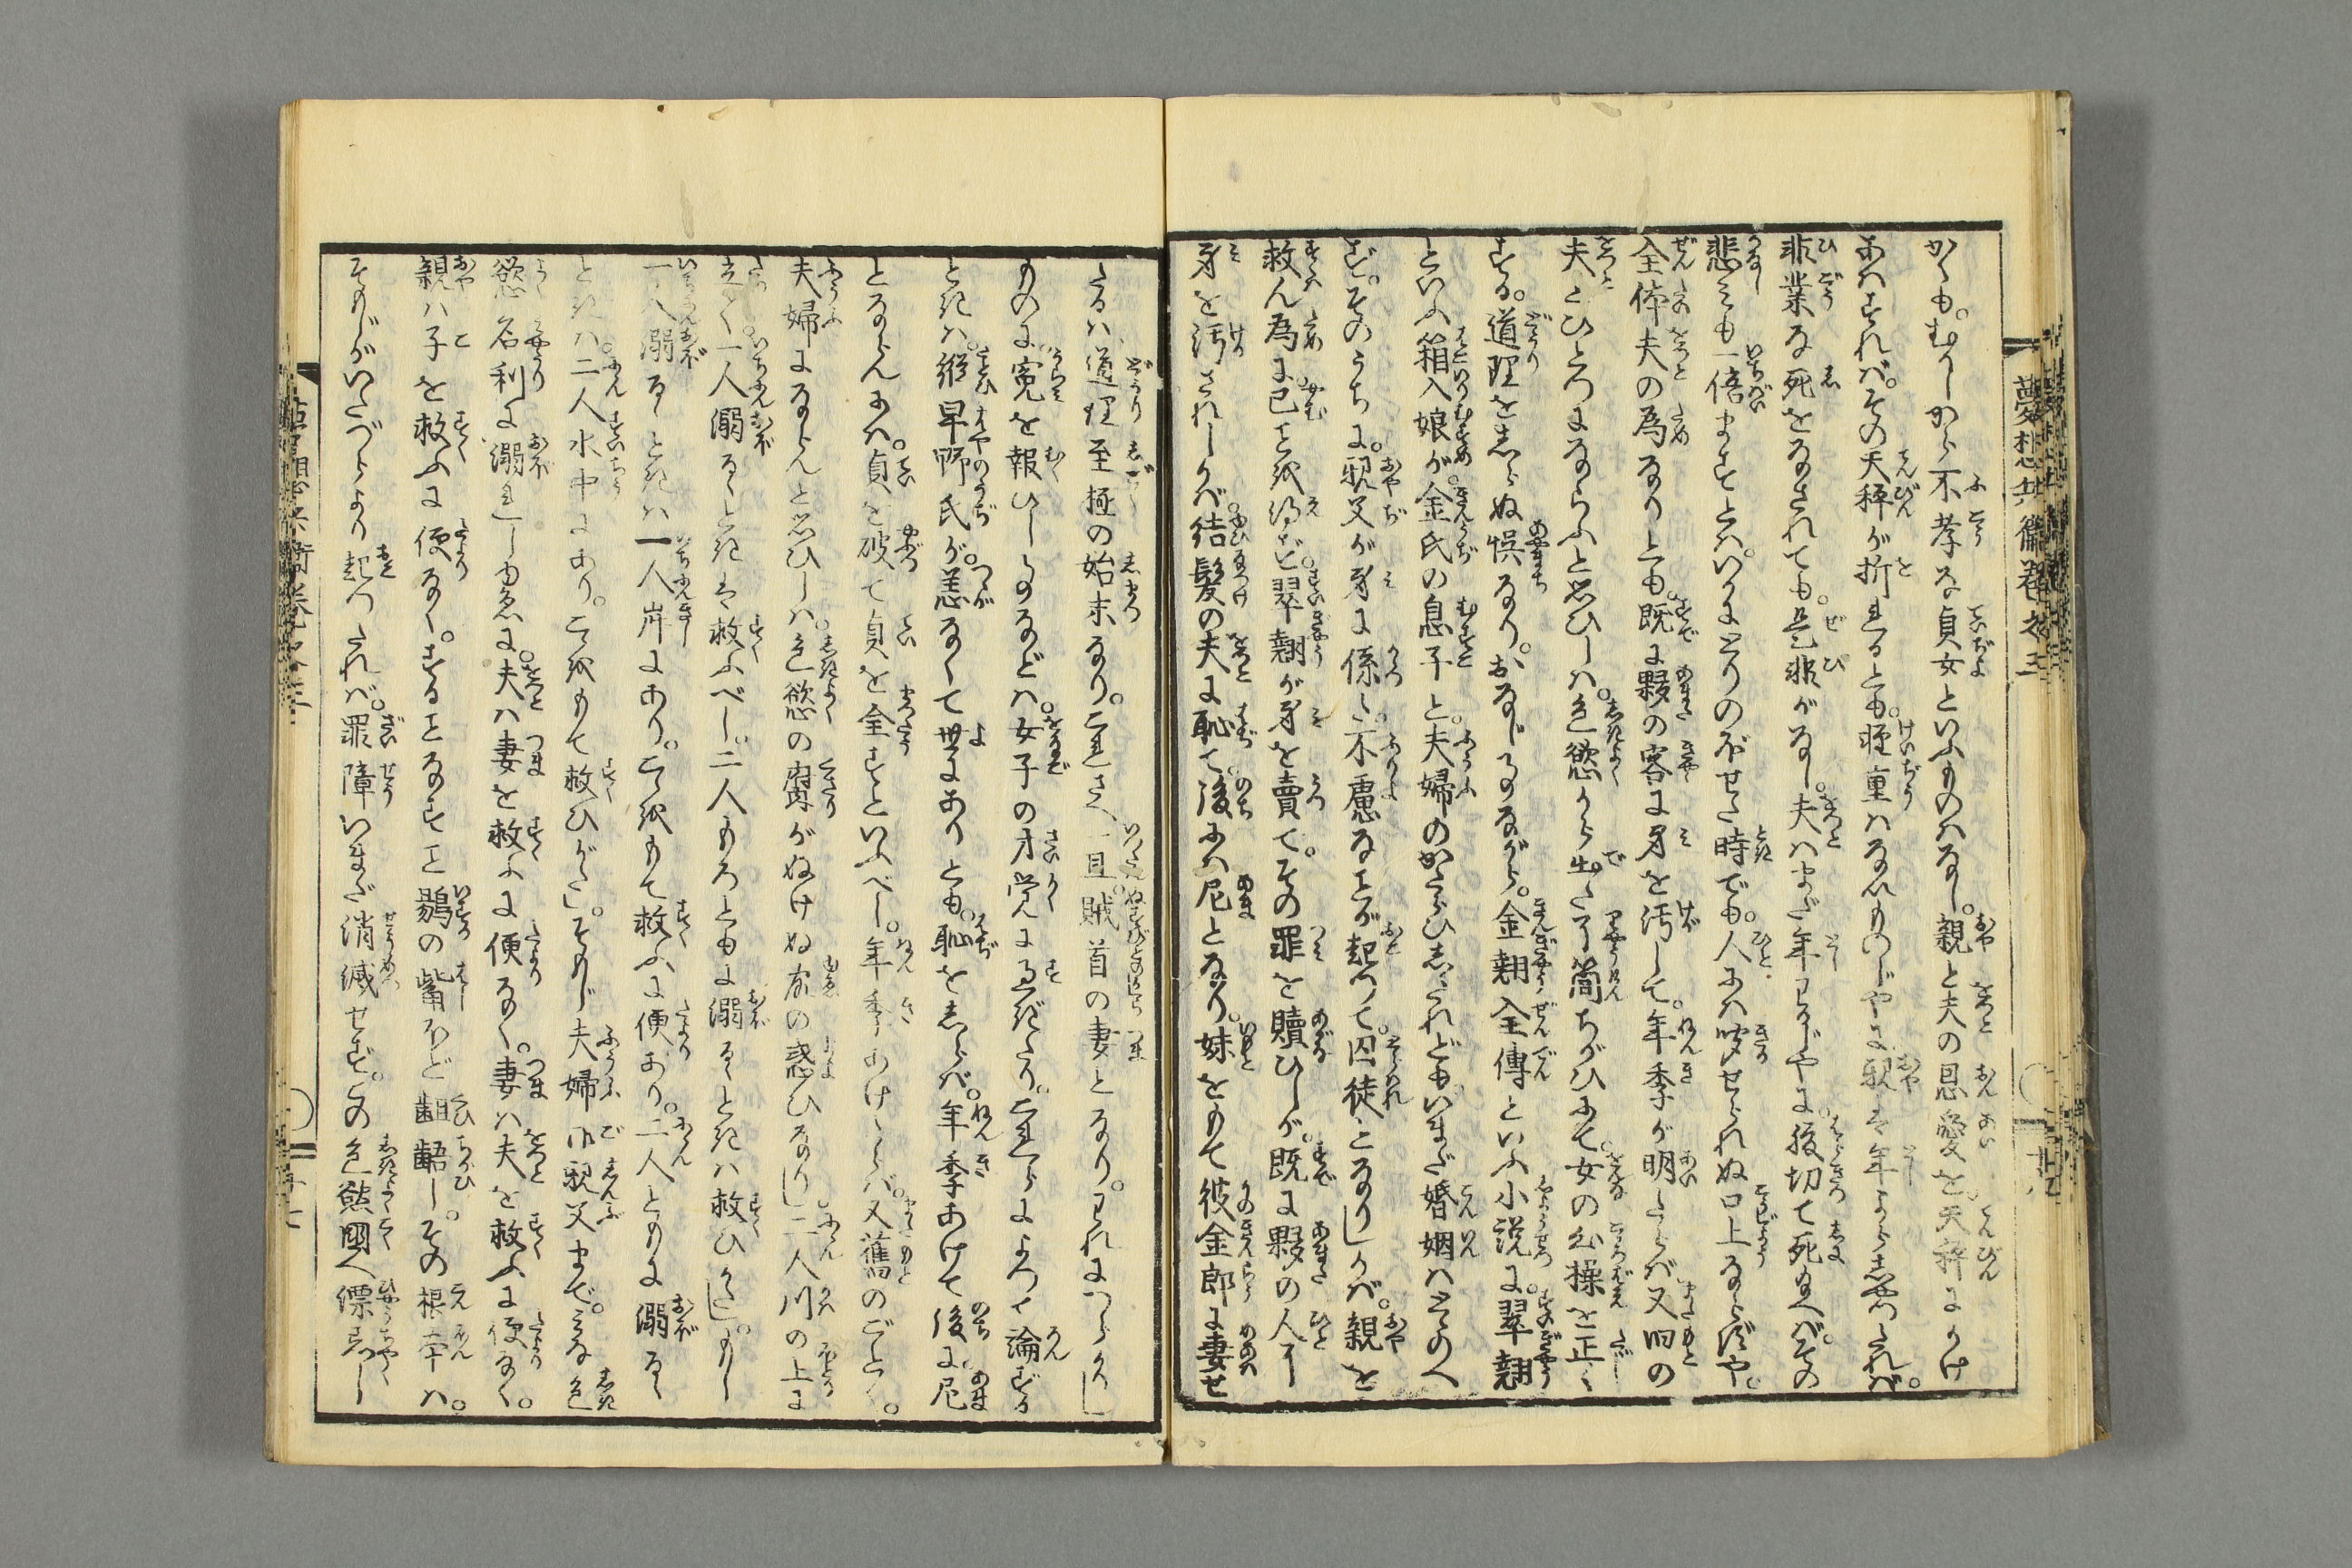 夢想兵衛 巻之三
かくも。むかしから不孝な貞女といふものはなし。親と夫の恩愛を。天秤にかけ
あはすれば。その天秤が折るとも。軽重はないものじやに親は年よらしやつたれば。
非業な死をなされても。是非がなし。夫はまだ年わかじやに。腹切て死ぬれば。その
悲みも一倍ますとは。いかにとりのぼせた時でも。人には聞せられぬ口上ならずや。
全体夫の為なりとも。既に夥の客に身を汚して。年季が明たらば又旧の
夫とひとつにならふと思ひしは。色慾から出た了簡ちがひにて。女の心操を正く
する。道理をしらぬ悞なり。おなじ事ながら。金翹全傳といふ小説に。翠翹
といふ箱入娘が。金氏の息子と。夫婦のかたらひしたれども。いまだ婚姻はとゝのへ
ず。そのうちに。親父が身に係る。不慮なことが起つて。囚徒となりしかば。親を
救ん為に。已ことを得ず。翠翹が身を賣て。その罪を贖ひしが。既に夥の人に
身を汚されしかば。結髪の夫に恥て。後には尼となり。妹をもて彼金郎に妻せ
たるは、道理至極の始末なり。これさへ一旦。賊首の妻となり。われにつらかりし
ものに寃を報ひし事などは。女子の才覚に過たり。これらによつて論ずる
ときは。縦早野氏が。恙なくて世にありとも。恥をしらば。年季あけて後に。尼
とならんには。貞を破て貞を全すといふべし。年季あけたらば。又舊のごとく。
夫婦にならんと思ひしは。色慾の腐がぬけぬ故の惑ひなり。二人川の上に
立て。一人溺るゝときは救ふべし。二人もろともに溺るゝときは救ひがたし。もし
一人溺るゝときは一人岸にあり。これをもて救ふに便あり。二人ともに溺るゝ
ときは。二人水中にあり。これをもて救ひがたし。そもじ夫婦び親父まで。みな色
慾名利に溺れしゆゑに。夫は妻を救ふに便なく。妻は夫を救ふに便なく。
親は子を救ふに便なし。することなすこと鶍の觜ほど齟齬し。その根本は。
そもじがいたづらより起つたれば。罪障いまだ消滅せず。この色慾國へ漂着し